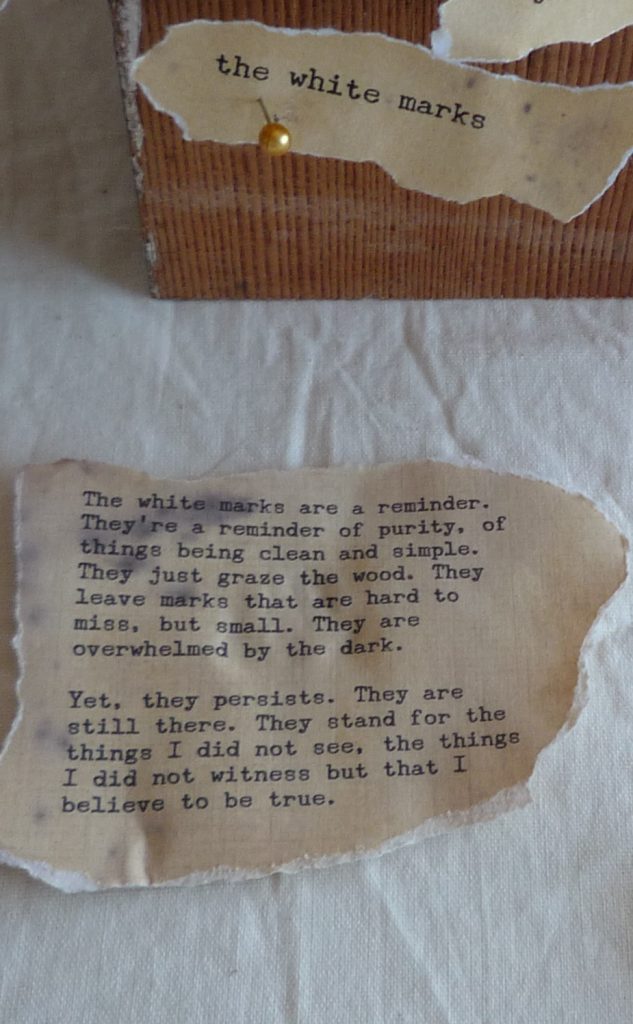 the white marks
The white marks are a reminder.
They're a reminder of purity, of
things being clean and simple.
They just graze the wood. They
leave marks that are hard to
miss, but small. They are
overwhelmed by the dark.
Yet, they persists. They are
still there. They stand for the
things I did not see, the things
I did not witness but that I
believe to be true.